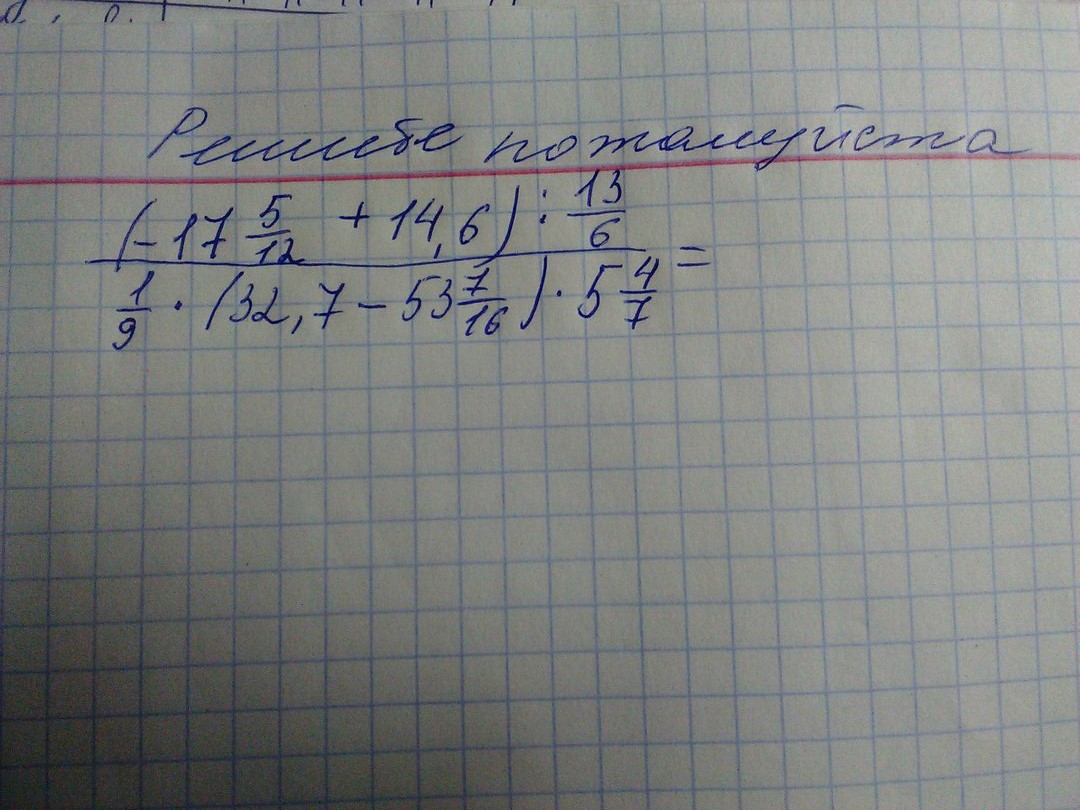 Решите пожалуйста
(-17 5/12 + 14,6) : 13/6
1/9 · (32,7 - 53 7/16) · 5 4/7 =